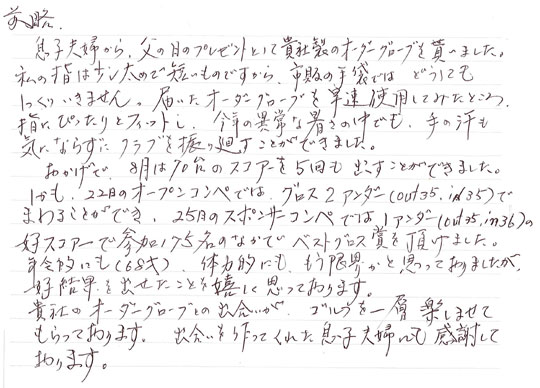 前略
息子夫婦から、父の日のプレゼントとして貴社製のオーダーグローブを貰いました。
私の指は少し太めで短いものですから、市販の手袋では どうしても
しっくりいきません。届いたオーダーグローブを早速使用してみたところ
指にぴったりとフィットし、今年の異常な暑さの中でも、手の汗も
気にならずにクラブを振り廻すことができました。
おかげで、8月は70台のスコアーを5回も出すことができました。
しかも、22日のオープンコンペでは、グロス2アンダー(out35、in35)で
まわることができ、25日のスポンサーコンペでは1アンダー(out35、in36)の
好スコアーで参加175名のなかでベストグロス賞を頂けました。
年令的にも(68才)、体力的にも、もう限界かと思っておりましたが、
好結果を出せたことを嬉しく思っております。
貴社のオーダーグローブとの出会いが、ゴルフを一層楽しませて
もらっております。出会いを作ってくれた息子夫婦にも感謝して
おります。